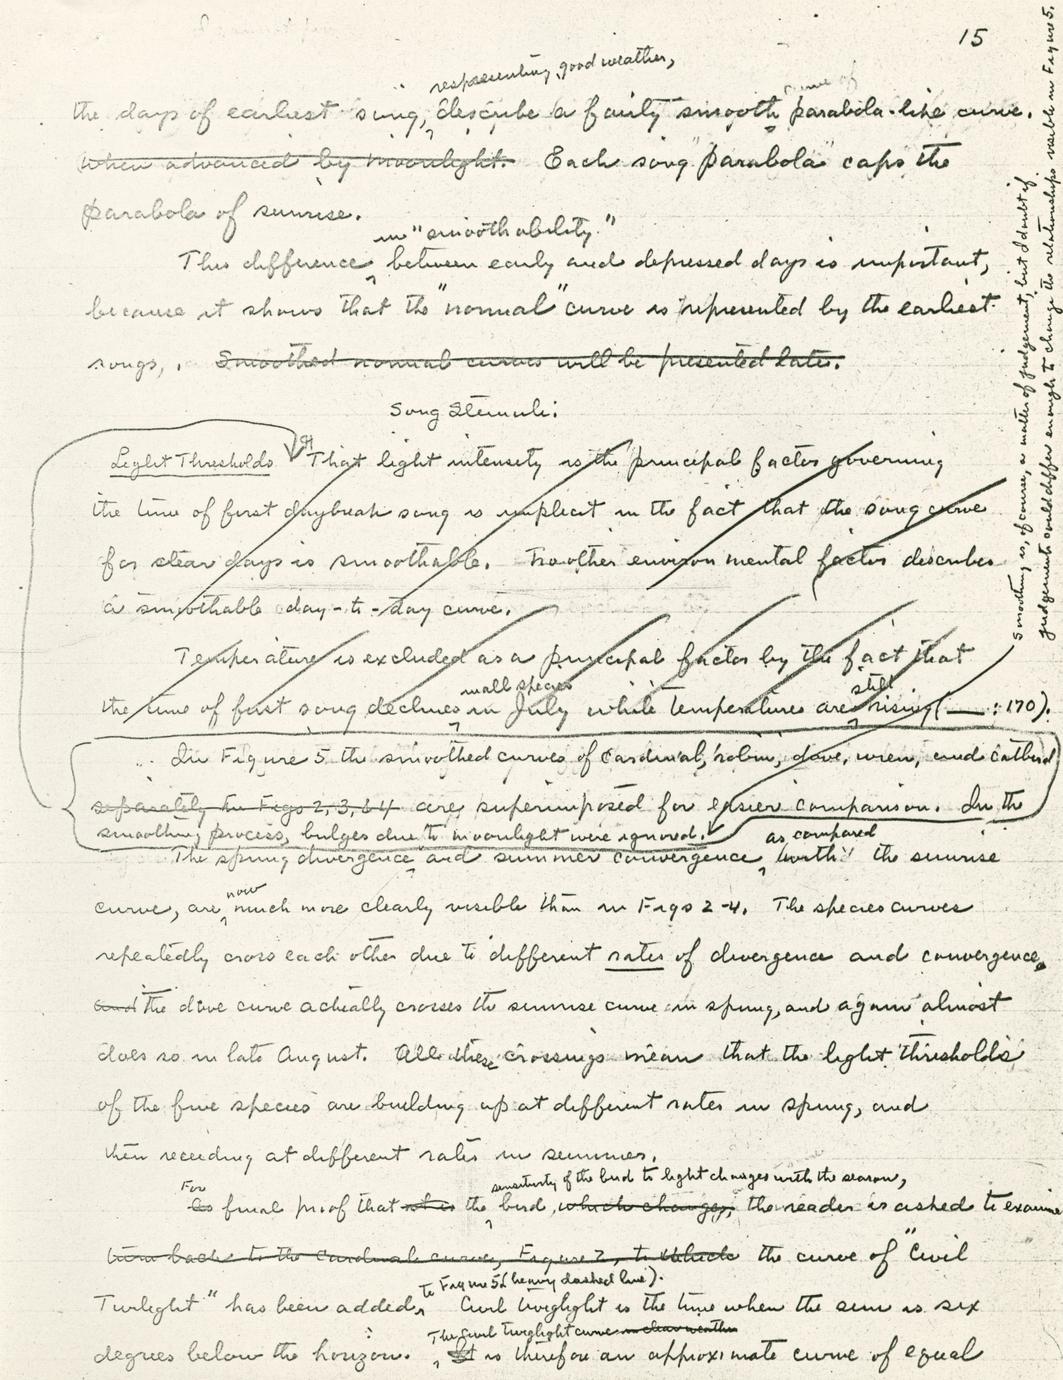 15
representing good weather,
the days of earliest song, describe a fairly smooth parabola-like curve.
when advanced by moonlight. Each song "parabola" caps the
parabola of sunrise.
in "smoothability."
This difference between early and depressed days is important,
because it shows that the "normal" curve is represented by the earliest
songs, . Smoothed normal curves will be presented later.
Song Stimuli:
Light Thresholds That light intensity is the principal factor governing
the time of first daybreak song is implicit in the fact that the song curve
for clear days is smoothable. No other environmental factor describes
a smoothable day-to-day curve.
Temperature is excluded as a principal factor by the fact that
in all species still
the time of first song declines in July while temperatures are rising (—: 170).
In Figure 5 the smoothed curves of Cardinal, robin, dove, wren, and catbird
separately in Figs 2, 3, & 4 are superimposed for easier comparison. In the
smoothing process, bulges due to moonlight were ignored.
as compared
The spring divergence and summer convergence, with the sunrise
now
curve, are much more clearly visible than in Figs 2-4. The species curves
repeatedly cross each other due to different rates of divergence and convergence,
and the dove curve actually crosses the sunrise curve in spring, and again almost
does so in late August. All these crossings mean that the light thresholds
of the five species are building up at different rates in spring, and
then receding at different rates in summer.
sensitivity of the bird to light changes with the season,
For
As final proof that it is the bird, which changes, the reader is asked to examine
turn back to the Cardinal curve, Figure 2, to which the curve of "Civil
to Figure 5 (heavy dashed line).
Twilight" has been added. Civil twiglight is the time when the sun is six
The Civil twiglight curve in clear weather
degrees below the horizon. It is therefore an approximate curve of equal
Smoothing is, of course, a matter of judgement, but I doubt if
judgements could differ enough to change the relationships visible in Figure 5.